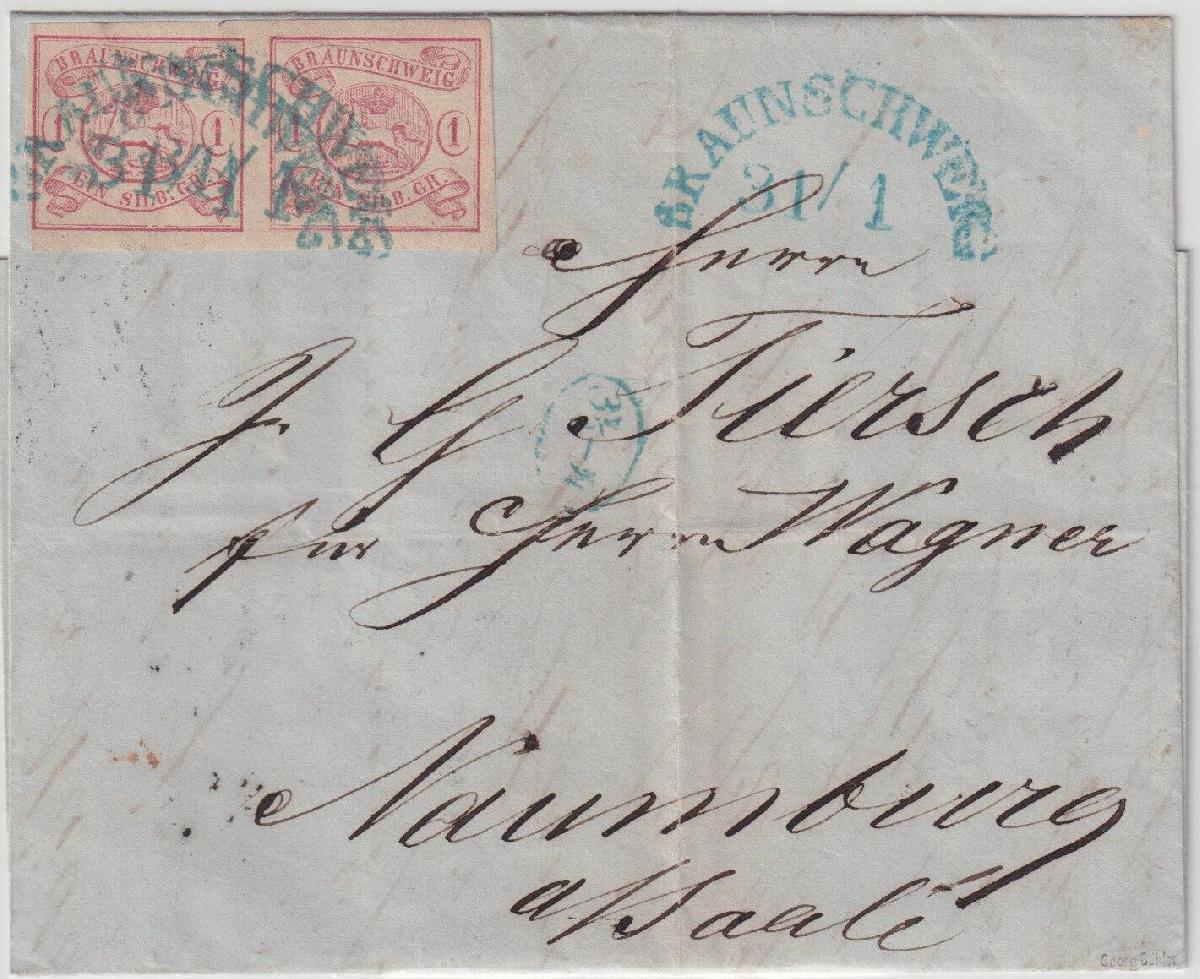 BRAUNSCHWEIG BRAUNSCHWEIG
1 1 1 1
EIN SILB.GR. EIN SILB.GR.
BRAUNSCHWEIG
31/1
BRAUNSCHWEIG
31/1
Herrn
J. G. Tiersch
für Herrn Wagner
Naumburg
a/Saale
Georg Bühler